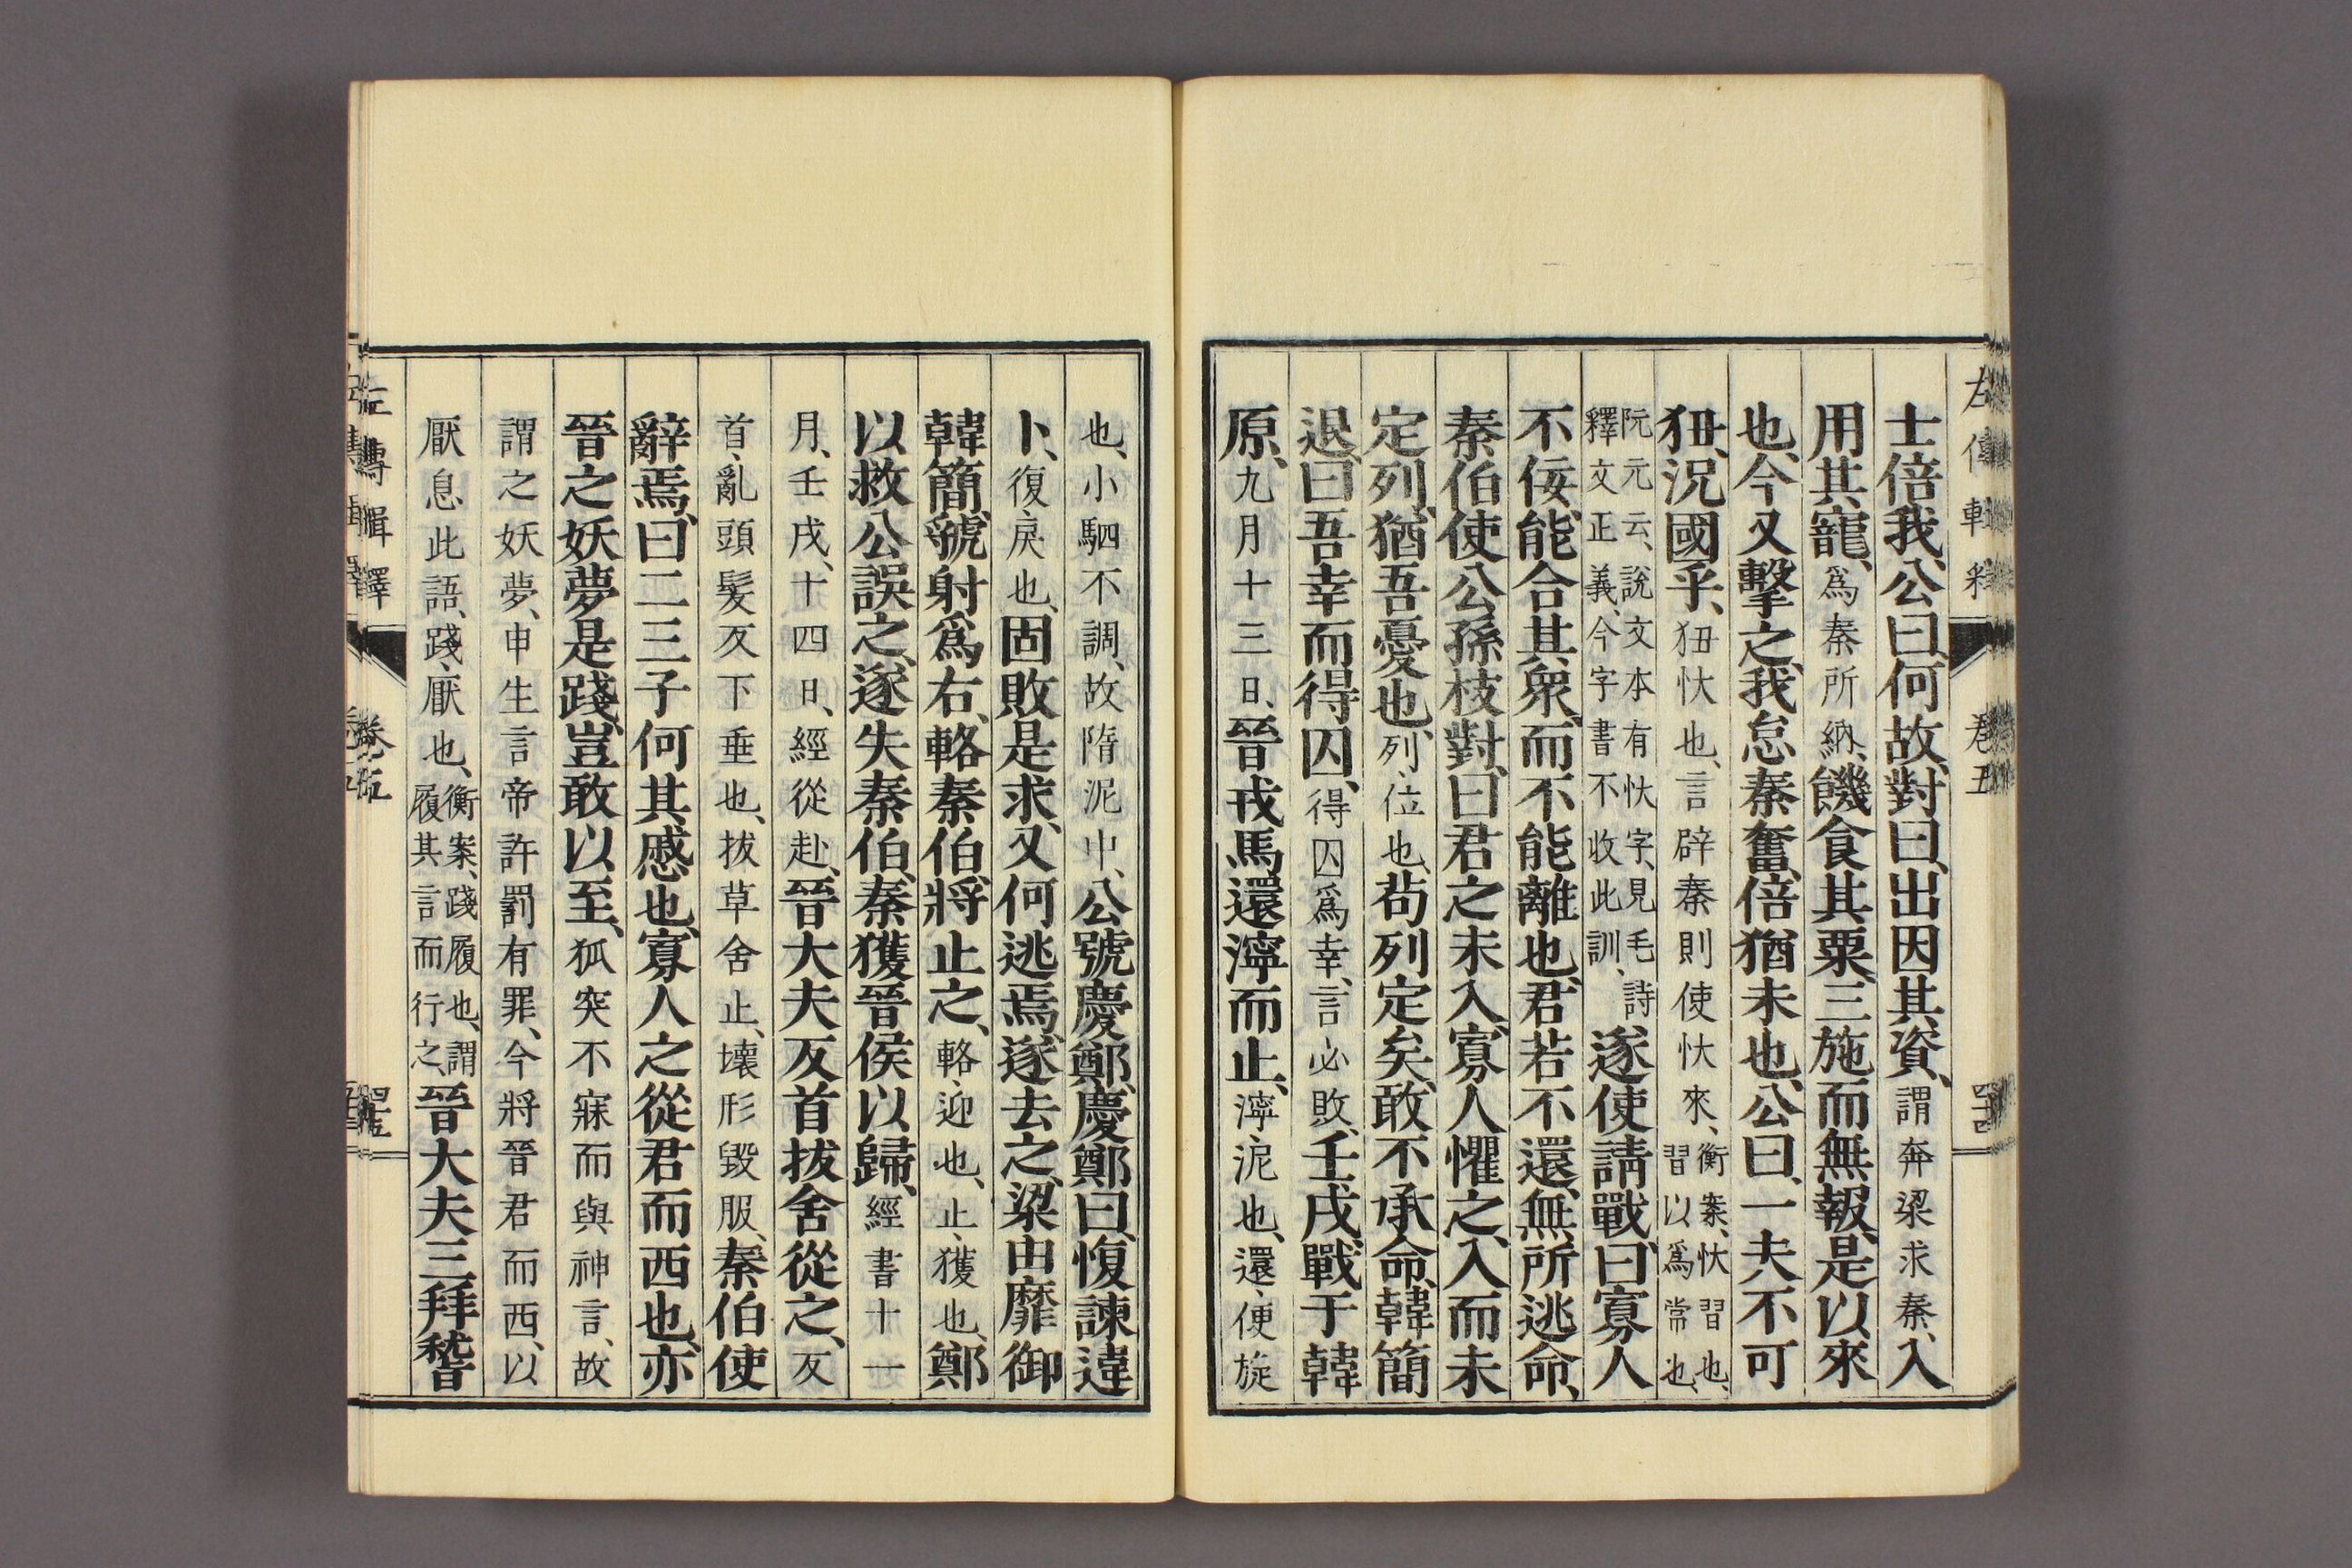 左傳輯釋 卷五
士倍我、公曰、何故、對曰、出因其資、謂奔梁求秦、入
用其寵、爲秦所納、饑食其粟、三施而無報、是以來
也、今又擊之、我怠秦奮、倍猶未也、公曰、一夫不可
狃、況國乎、狃忕也、言辟秦則使忕來、衡案、忕習也、習以爲常也、
阮元云、說文本有忕字、見毛詩釋文正義、今字書不收此訓、遂使請戰、曰寡人
不佞、能合其衆、而不能離也、君若不還、無所逃命、
秦伯使公孫枝對、曰君之未入、寡人懼之、入而未
定列、猶吾憂也、列、位也、茍列定矣、敢不承命、韓簡
退、曰吾幸而得囚、得囚爲幸、言必敗、壬戌戰于韓
原、九月十三日、晉戎馬還濘而止、濘、泥也、還、便旋
也、小駟不調、故隋泥中、公號慶鄭、慶鄭曰、愎諫違
卜、復、戾也、固敗是求、又何逃焉、遂去之、梁由靡御
韓簡、虢射爲右、輅秦伯、將止之、輅、迎也、止、獲也、鄭
以救公誤之、遂失秦伯、秦獲晉侯以歸、經書十一
月、壬戌、十四日、經從赴、晉大夫反首拔舍從之、反
首、亂頭髮反下垂也、拔草舍止、壞形毀服、秦伯使
辭焉、曰二三子何其慼也、寡人之從君而西也、亦
晉之妖夢是踐、豈敢以至、狐突不寐而與神言、故
謂之妖夢、申生言帝許罰有罪、今將晉君而西、以
厭息此語、踐、厭也、衡案、踐履也、謂履其言而行之、晉大夫三拜稽
左傳輯釋 卷五 四十五